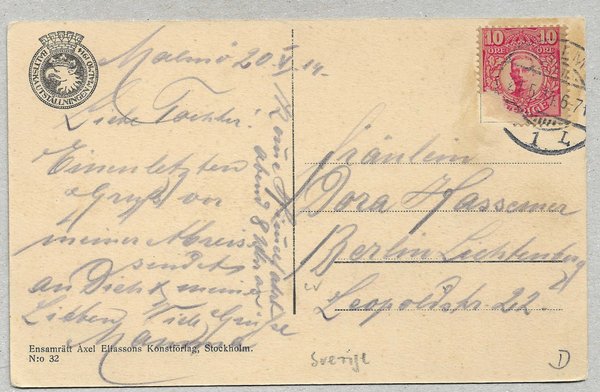 BALTISKA UTSTÄLLNINGEN MALMÖ 1914
Malmö 20 V 14.
Liebe Tochter!
Einen letzten
Gruß vor
meiner Abreis
sendet
an Dich & meine
Lieben Viele Grüße
Mama
abend 8 Uhr an.
Ensamrätt Axel Eliassons Konstförlag, Stockholm.
N:o 32
10 10
ÖRE ÖRE
SVERIGE
1 L
Fräulein
Dora Hassemer
Berlin Lichtenberg
Leopoldstr 22.
Sverige
D